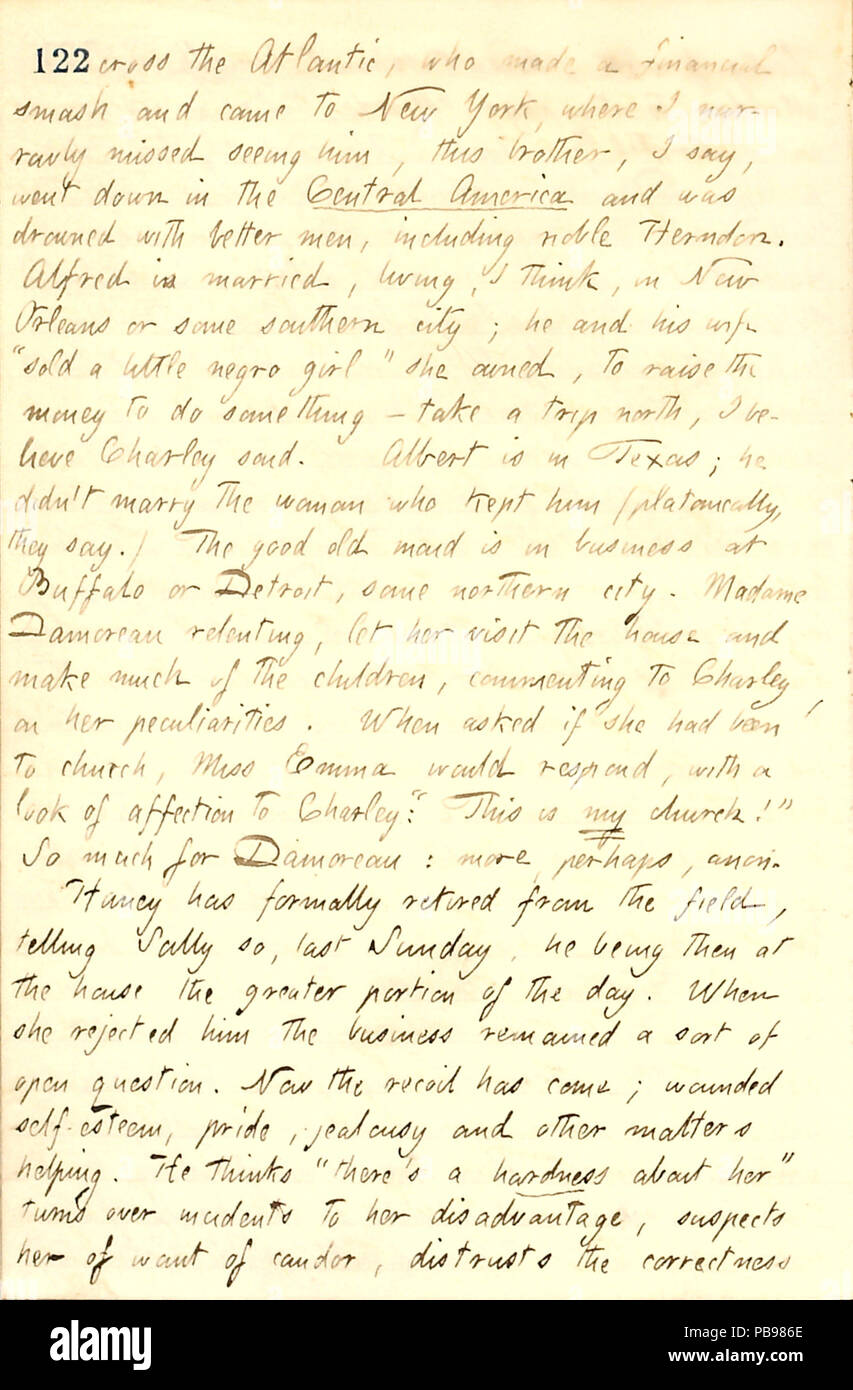 122 cross the Atlantic, who made a financial
smash and came to New York, where I nar-
rowly missed seeing him, this brother, I say,
went down in the Central America and was
drowned with better men, including noble Herndon.
Alfred is married, living, I think, in New
Orleans or some southern city; he and his wife
"sold a little negro girl" she owned, to raise the
money to do something — take a trip north, I be-
lieve Charley said. Albert is in Texas; he
didn't marry the woman who kept him (platonically,
they say.) The good old maid is in business at
Buffalo or Detroit, some northern city. Madame
Damoreau relenting, let her visit the house and
make much of the children, commenting to Charley,
on her peculiarities. When asked if she had been
to church, Miss Emma would respond, with a
look of affection to Charley: "This is my church!"
So much for Damoreau: more, perhaps, anon.
Haney has formally retired from the field,
telling Sally so, last Sunday, he being then at
the house the greater portion of the day. When
she rejected him the business remained a sort of
open question. Now the recoil has come; wounded
self-esteem, pride, jealousy and other matters
helping. He thinks "there's a hardness about her"
turns over incidents to her disadvantage, suspects
her of want of candor, distrusts the correctness
alamy
Image ID: PB986E
www.alamy.com